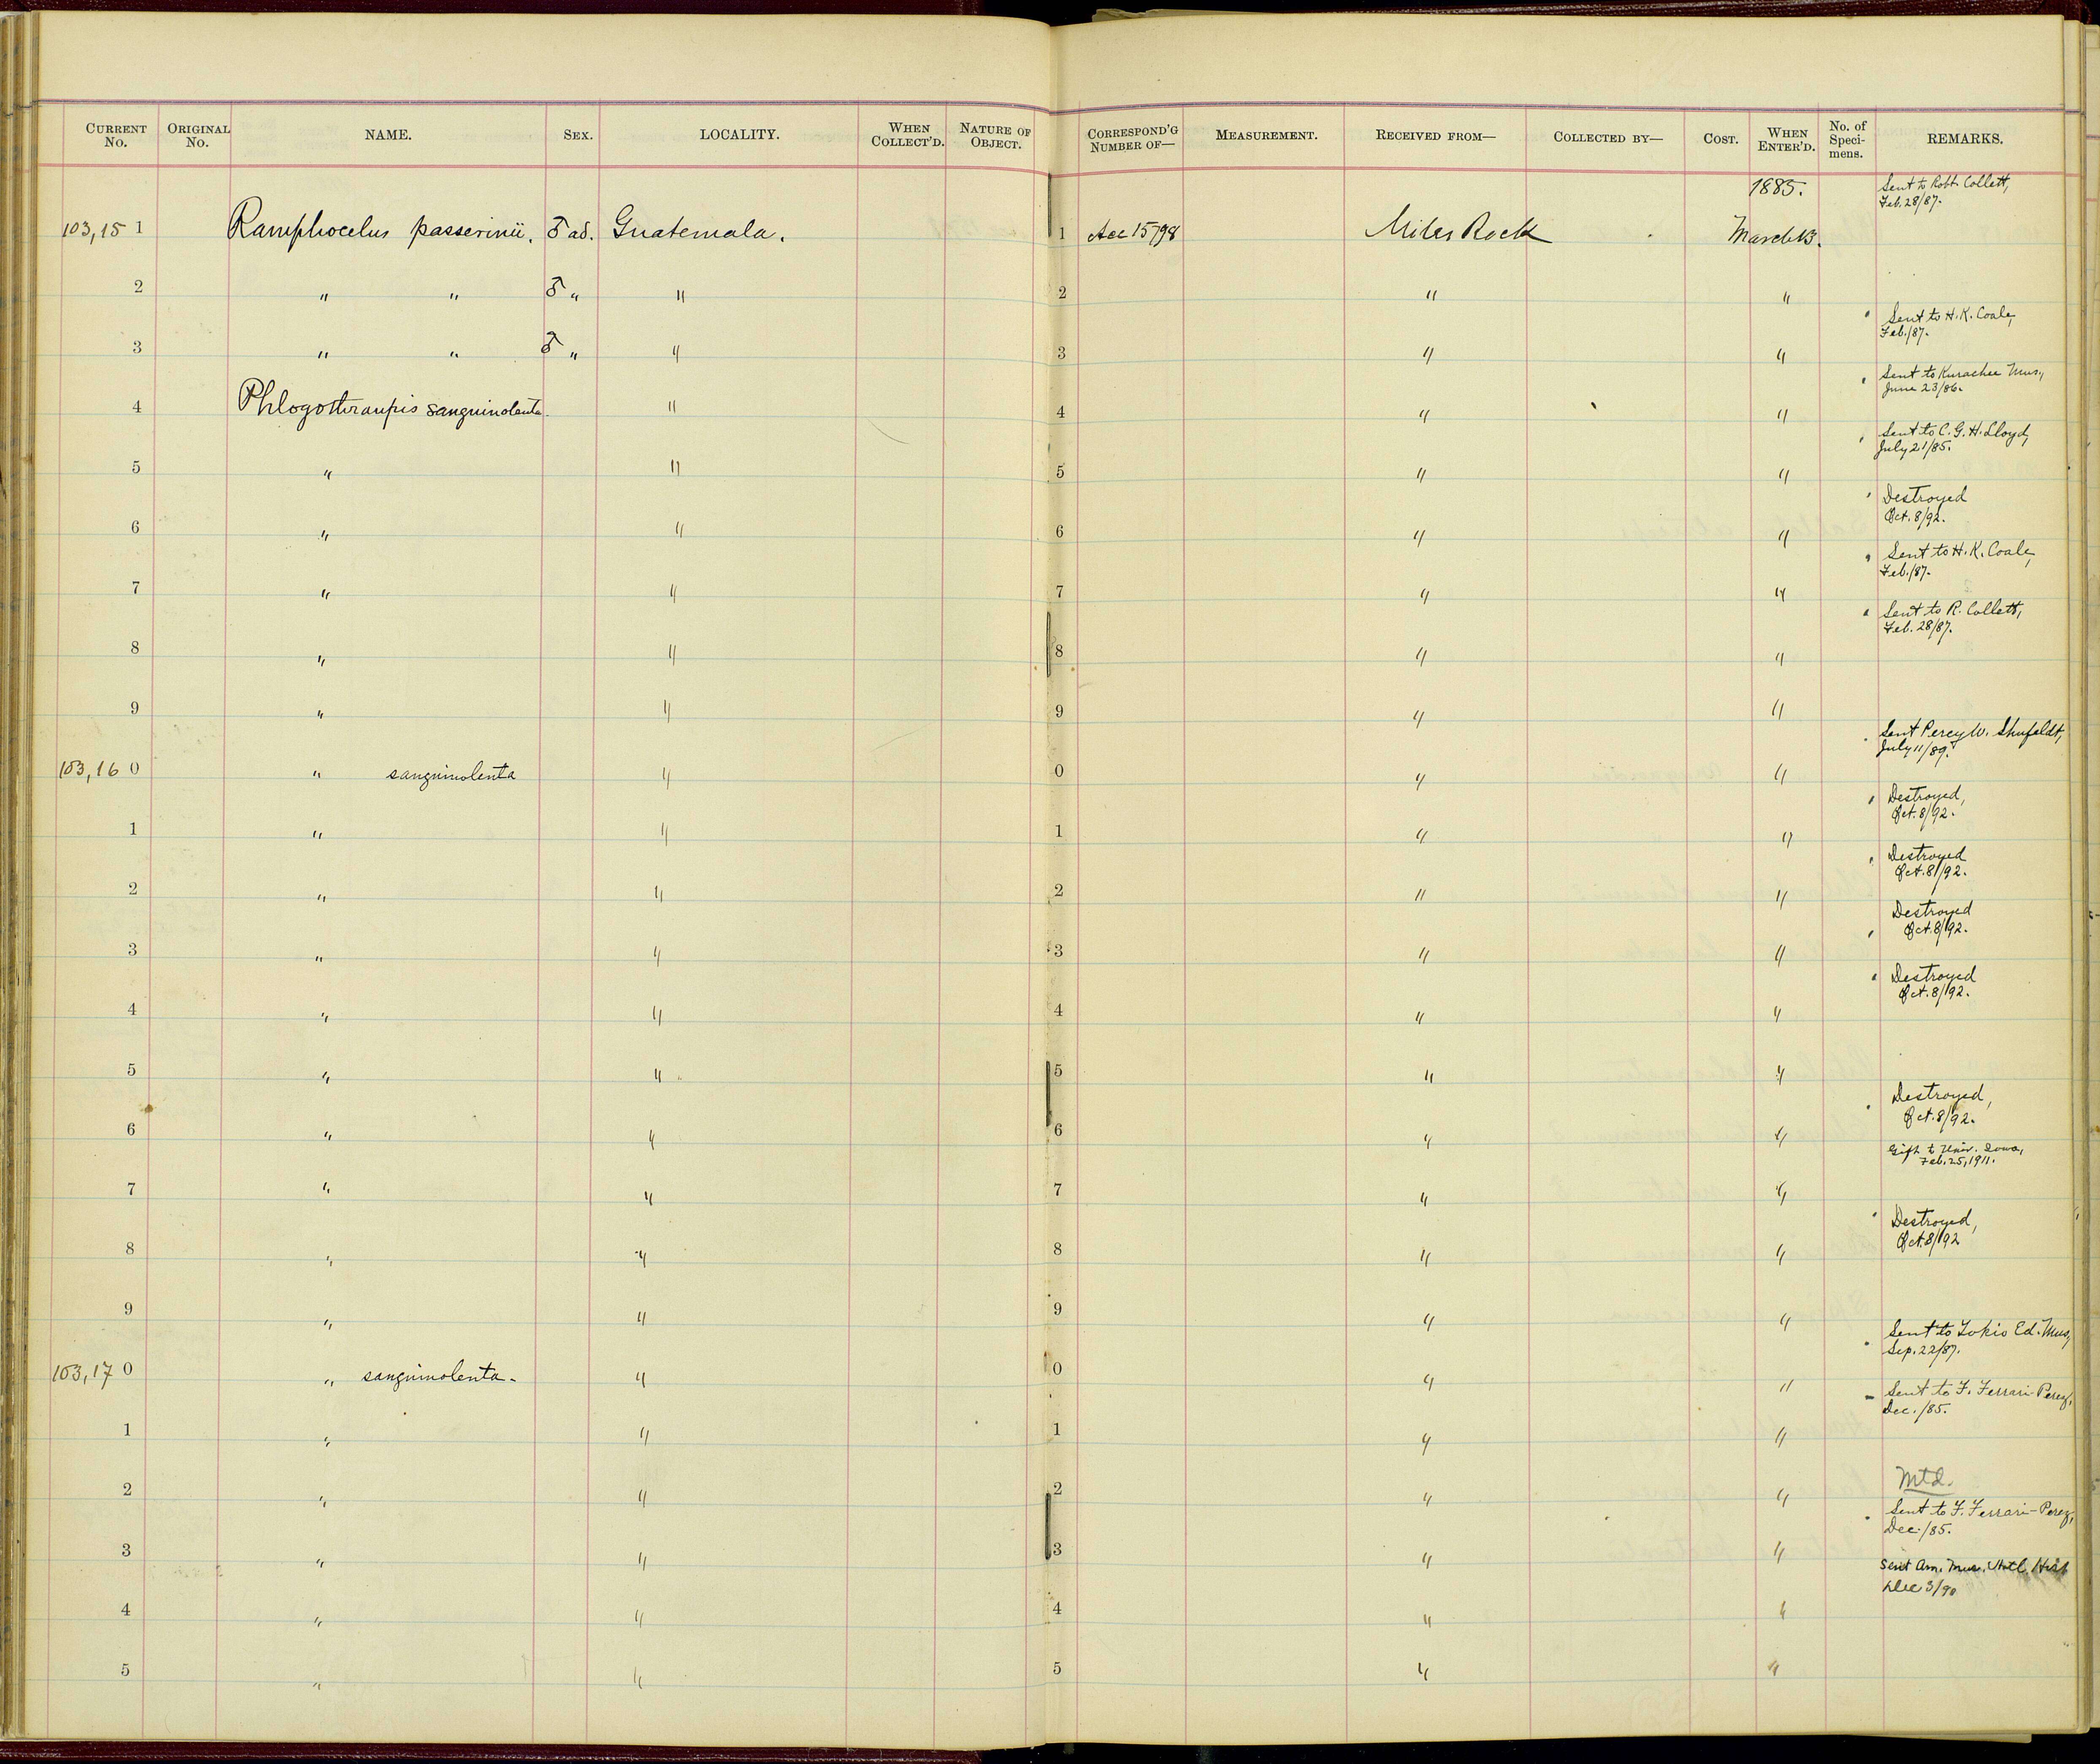 CURRENT No. ORIGINAL No. NAME. SEX. LOCALITY. WHEN COLLECT'D. NATURE OF OBJECT. CORRESPOND'G NUMBER OF— MEASUREMENT. RECEIVED FROM— COLLECTED BY— COST. WHEN ENTER'D. No. of Speci-mens. REMARKS.
1885. Sent to Robt. Collett,
Feb. 28/87.
103,15 1 Ramphocelus passerinii. ♂ ad. Guatemala. 1 Acc 15798 Miles Rock March 13.
2 " " ♂ " " 2 " "
Sent to H. K. Coale,
Feb./87.
3 " " ♂ " " 3 " "
Sent to Kurachee Mus.,
June 23/86.
4 Phlogothraupis sanguinolenta. " 4 " "
Sent to C. G. H. Lloyd,
July 21/85.
5 " " 5 " "
Destroyed
Oct. 8/92.
6 " " 6 " "
Sent to H. K. Coale,
Feb./87.
7 " " 7 " "
Sent to R. Collett,
Feb. 28/87.
8 " " 8 " "
9 " " 9 " "
Sent Percy W. Shufeldt,
July 11/89.
103,16 0 " sanguinolenta " 0 " "
Destroyed,
Oct. 8/92.
1 " " 1 " "
Destroyed
Oct. 8/92.
2 " " 2 " "
Destroyed
Oct. 8/92.
3 " " 3 " "
Destroyed
Oct. 8/92.
4 " " 4 " "
5 " " 5 " "
Destroyed,
Oct. 8/92.
6 " " 6 " "
Gift to Univ. Iowa,
Feb. 25, 1911.
7 " " 7 " "
Destroyed,
Oct. 8/92
8 " " 8 " "
9 " " 9 " "
Sent to Tokio Ed. Mus,
Sep. 22/87.
103,17 0 " sanguinolenta. " 0 " "
Sent to F. Ferrari-Perez,
Dec./85.
1 " " 1 " "
Mtd.
2 " " 2 " "
Sent to F. Ferrari-Perez,
Dec./85.
3 " " 3 " "
Sent Am. Mus. Natl. Hist
Dec 3/90
4 " " 4 " "
5 " " 5 " "